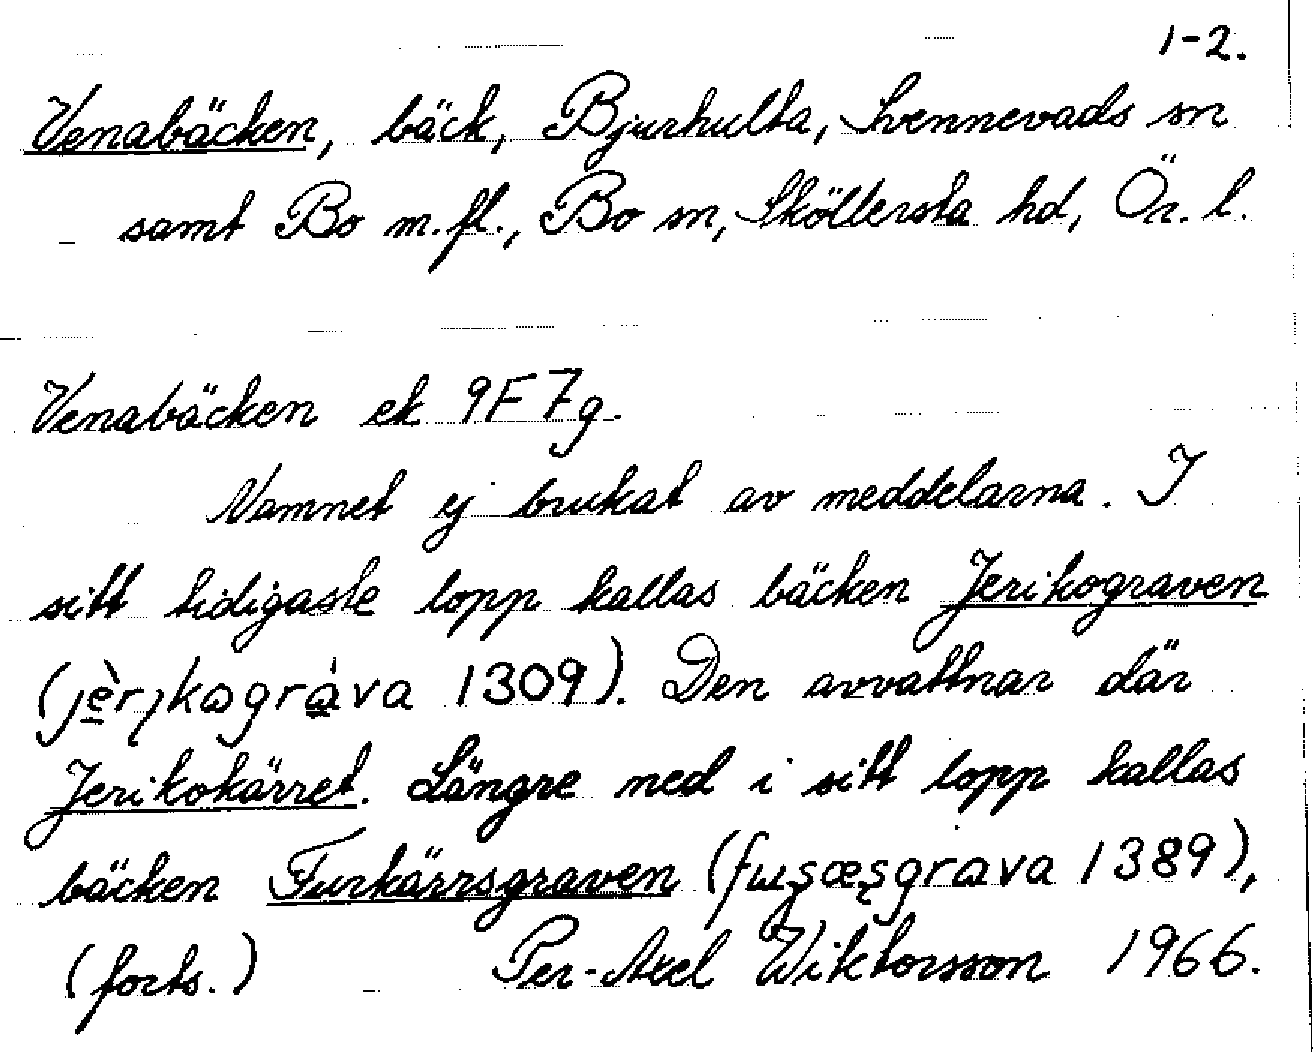 1-2.
Venabäcken, bäck, Bjurhulta, Svennevads sn
samt Bo m.fl., Bo sn, Sköllersta hd, Ör. l.
Venabäcken ek 9F7g.
Namnet ej brukat av meddelarna. I
sitt tidigaste lopp kallas bäcken Jerikograven
( 1309). Den avvattnar där
Jerikokärret. Längre ned i sitt lopp kallas
bäcken Furkärrsgraven ( 1389),
(forts.) Per-Axel Wiktorsson 1966.